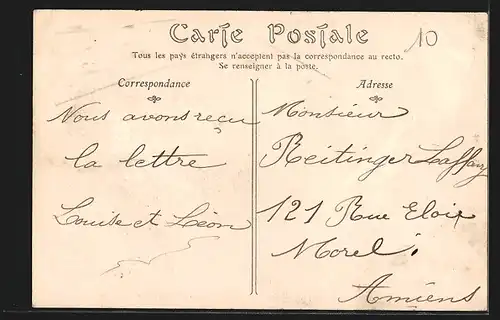 Carte Postale
10
Tous les pays étrangers n'acceptent pas la correspondance au recto.
Se renseigner à la poste.
Correspondance
Nous avons reçu
la lettre
Louise et Léon
Adresse
Monsieur
Reitinger Laffay
121 Rue Eloir
Morel.
Amiens